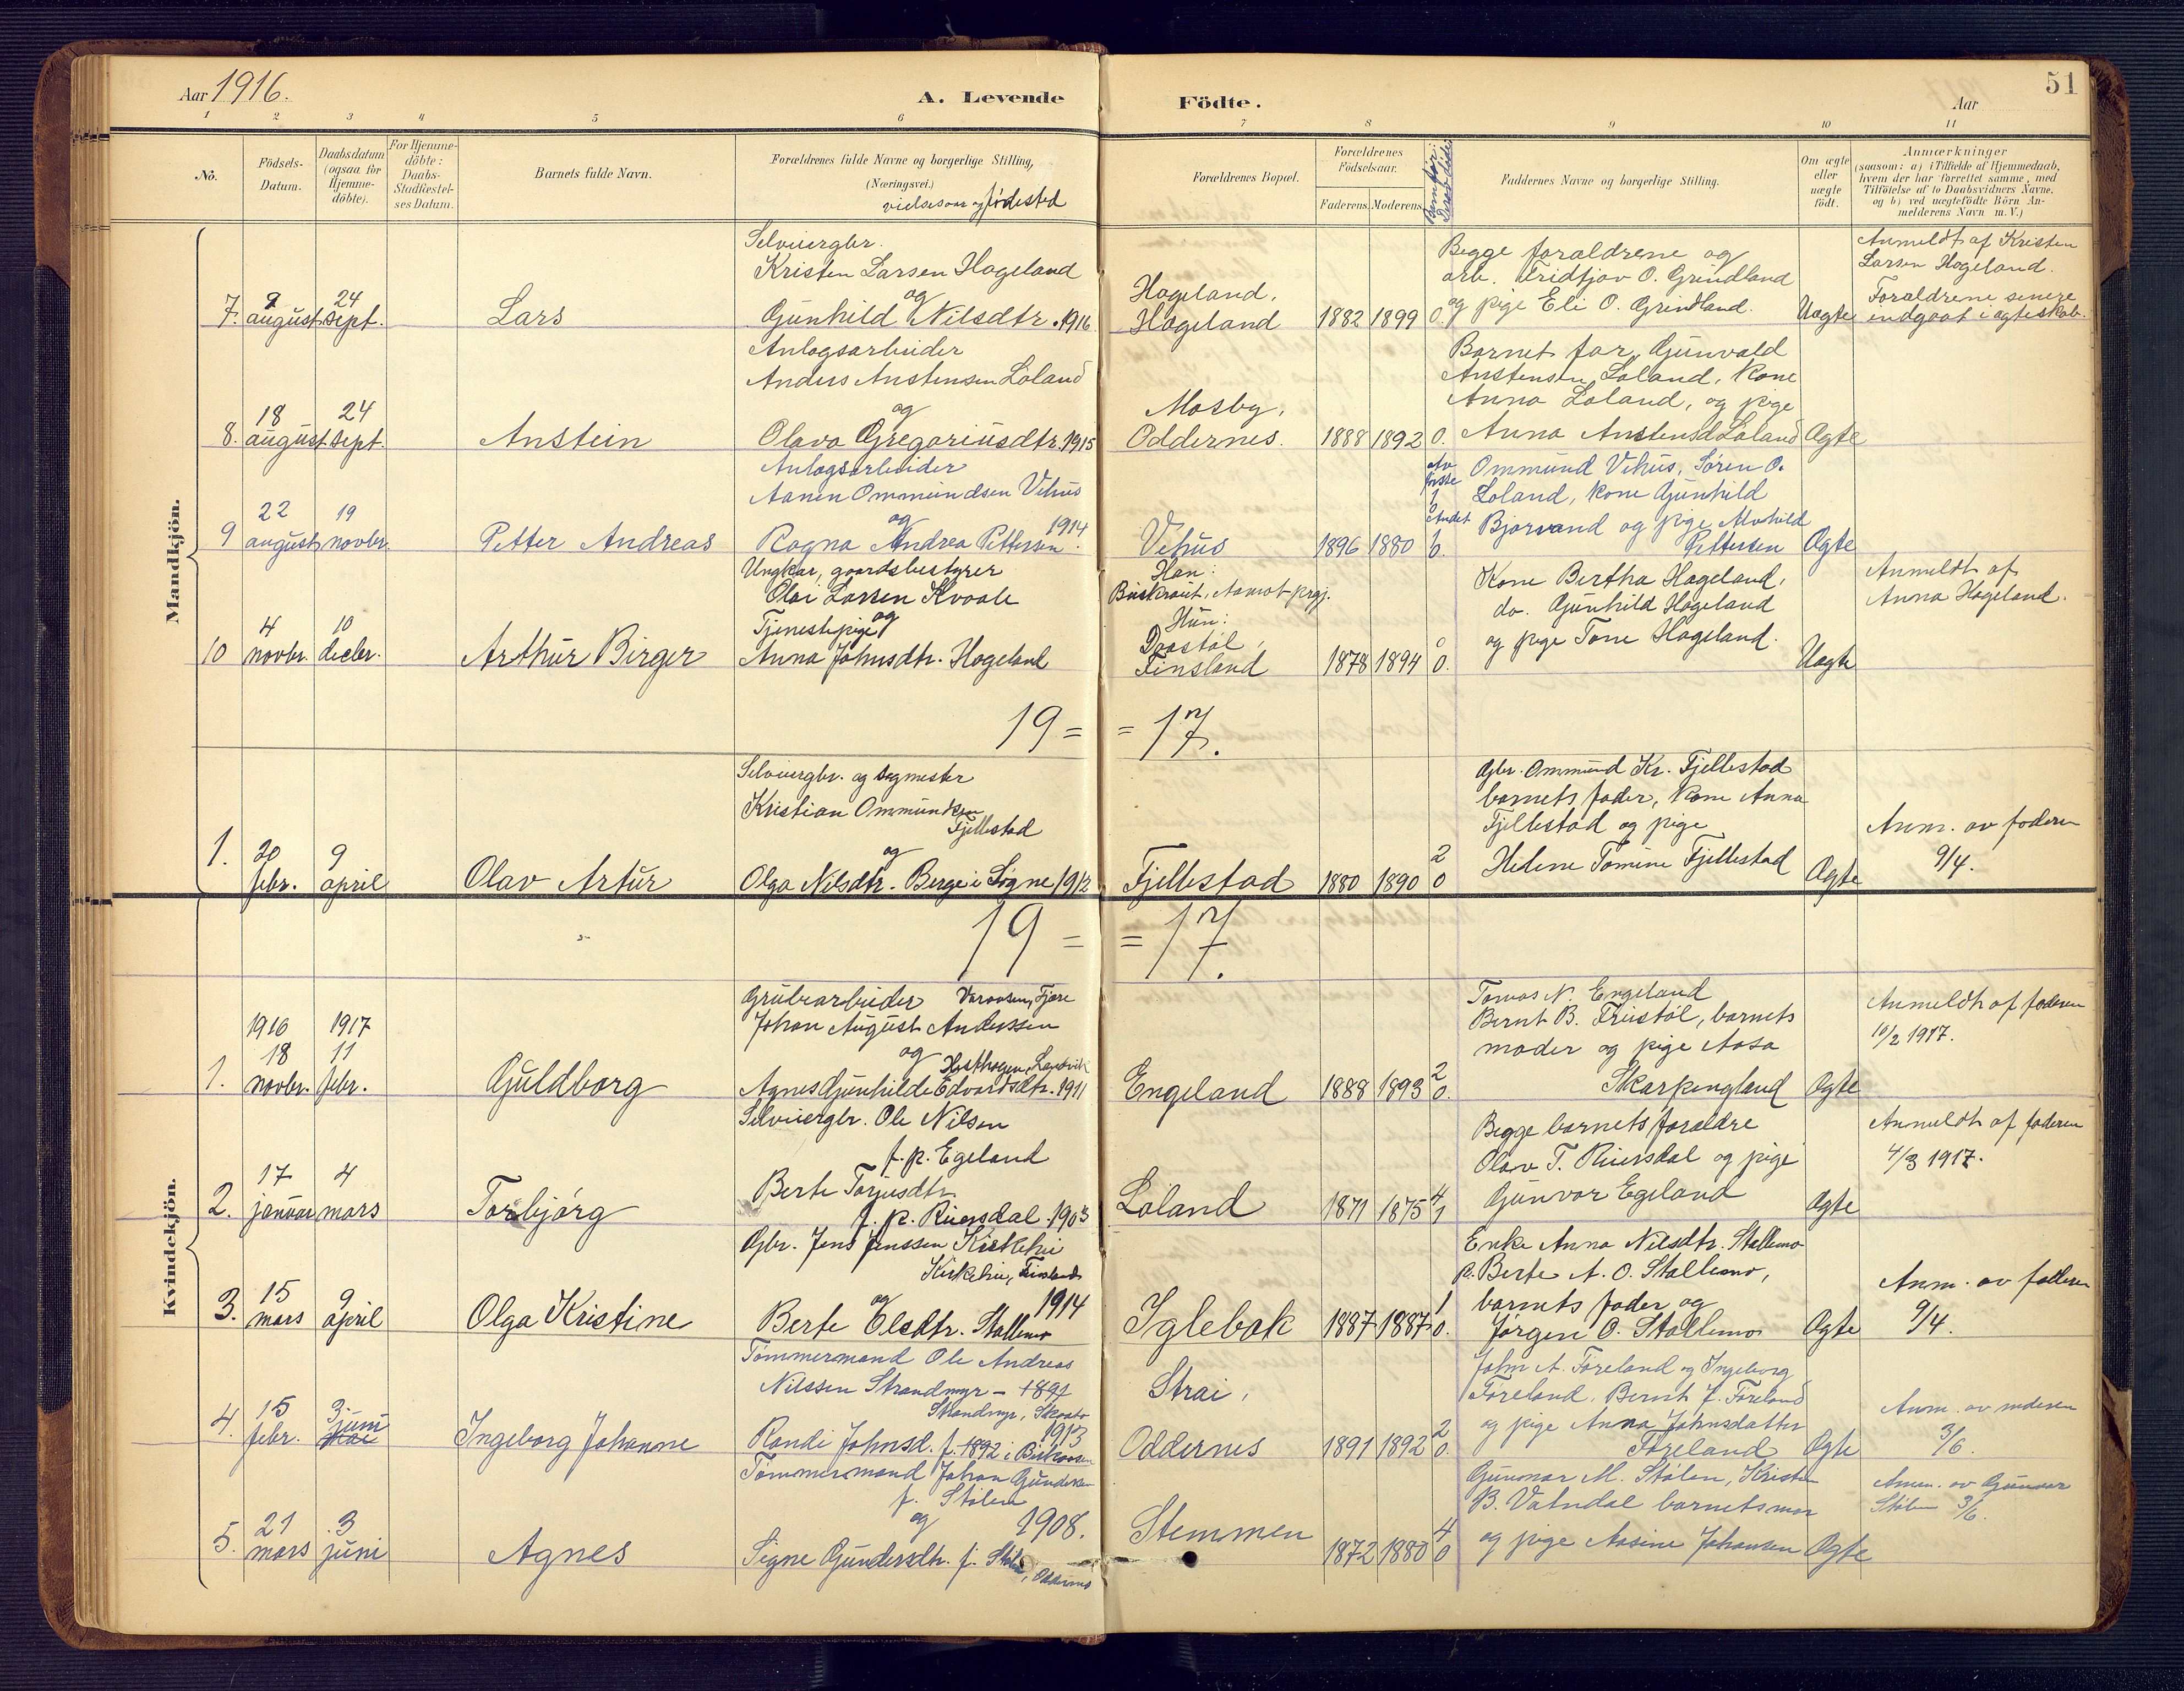 Aar 1916.
A. Levende
Födte.
Aar
51
1 2 3 4 5 6 7 8 9 10 11
No.
Födsels-
Datum.
Daabsdatum
(ogsaa for
Hjemme-
döbte).
For Hjemme-
döbte:
Daabs-
Stadfæstel-
ses Datum.
Barnets fulde Navn.
Forældrenes fulde Navne og borgerlige Stilling,
(Næringsvei.)
vielsesaar og fødested
Forældrenes Bopæl.
Forældrenes
Födselsaar.
Faderens. Moderens.
Faddernes Navne og borgerlige Stilling.
Om ægte
eller
uægte
födt.
Anmærkninger
(saasom: a) i Tilfælde af Hjemmedaab,
hvem der har forrettet samme, med
Tilföielse af to Daabsvidners Navne.
og b) ved uægtefödte Börn An-
melderens Navn m. V.)
Mandkjön.
7. 9 august 24 sept.
Lars
Selveiergbr.
Kristen Larsen Hageland
og
Gunhild Nilsdtr. 1916
Hageland,
Hageland
1882 1899 0.
Begge foraldrene og
arb. Fridtjov O. Grindland
og pige Eli O. Grindland.
Uagte
Anmeldt af Kristen
Larsen Hageland.
Foraldrene senere
indgaat i agteskab.
8. 18 august 24 sept.
Anstein
Anlagsarbeider
Anders Anstensen Løland
og
Olava Gregoriusdtr. 1915
Mosby,
Oddernes.
1888 1892 0.
Barnets far, Gunvald
Anstensen Løland, kone
Anna Løland, og pige
Anna Anstensd Løland
Ægte
9 22 august 19 novbr.
Petter Andreas
Anlagsarbeider
Aanen Ommundsen Vehus
og 1914
Ragna Andrea Pettersen.
Vehus
1896 1880
Av
første
1
0
Andet
1
0.
Ommund Vehus, Søren O.
Løland, kone Gunhild
Bjørvand og pige Alvhild
Pettersen
Ægte
10 4 novbr. 10 decbr.
Arthur Birger
Ungkar, gaardsbestyrer
Olai Larsen Kvaale
og
Tjenestepige
Anna Johnsdtr. Hageland
Han:
Buskerud, Aamot prgj.
Hun:
Finsland
1878 1894
0
0.
Kone Bertha Hageland,
do. Gunhild Hageland
og pige Tone Hageland.
Uægte
Anmeldt af
Anna Hageland.
19 = = 17.
1. 20 febr. 9 april
Olav Artur
Selveiergbr. og sagmester
Kristian Ommundsen
Fjellestad
og
Olga Nilsdtr. Berge i Søgne 1912
Fjellestad
1880 1890
2
0
Gbr. Ommund Kr. Fjellestad
barnets fader, kone Anna
Fjellestad og pige
Helene Tomine Fjellestad
Ægte
Anm. av faderen
9/4.
19 = = 17.
Kvindekjön.
1916 1917
1. 18 novbr. 11 febr.
Guldborg
Grubearbeider
Johan August Anderssen
og
Agnes Gunhilde Edvardsdtr. 1911
Engeland
1888 1893
2
0.
Tomas N. Engeland
Bernt B. Frustøl, barnets
moder og pige Aasa
Skarpengland
Ægte
Anmeldt af faderen
10/2 1917.
2. 17 januar 4 mars
Torbjørg
Selveiergbr. Ole Nilsen
f. p. Egeland
Berte Torjusdtr.
f. p. Ruersdal. 1903
Løland
1871 1875
4
1
Begge barnets foraldre
Olav T. Ruersdal og pige
Gunvor Egeland
Ægte
Anmeldt af faderen
4/3 1917.
3. 15 mars 9 april
Olga Kristine
Gbr. Jens Jenssen Kirkehei
Kirkehei, Finsland
og 1914
Berte Olsdtr. Stallemo
Iglebæk
1887 1887
1
0.
Enke Anna Nilsdtr. Stallemo
p. Berte A. O. Stallemo,
barnets fader og
Jørgen O. Stallemo
Ægte
Anm. av faderen
9/4.
4. 15 febr. 3. juni
Ingeborg Johanne
Tømmermand Ole Andreas
Nilssen Strandmyr - 1891
Strandmyr, Skaatø
1913
Randi Johnsd. f. 1892 i
Strai,
Oddernes
1891 1892
2
0.
John A. Føreland og Ingeborg
Føreland, Bernt J. Føreland
og pige Anna Johnsdatter
Føreland
Ægte
Anm. av moderen
3/6.
5. 21 mars 3 juni
Agnes
Tømmermand Johan Gundersen
f. Stølen
og 1908.
Signe Gundersdtr. f. Stølen, Oddernes
Stemmen
1872 1880
4
0
Gunnar M. Stølen, Kristen
B. Vatndal barnets mor
og pige Aasine Johansen
Ægte
Anm. av Gunnar
Stølen 3/6.